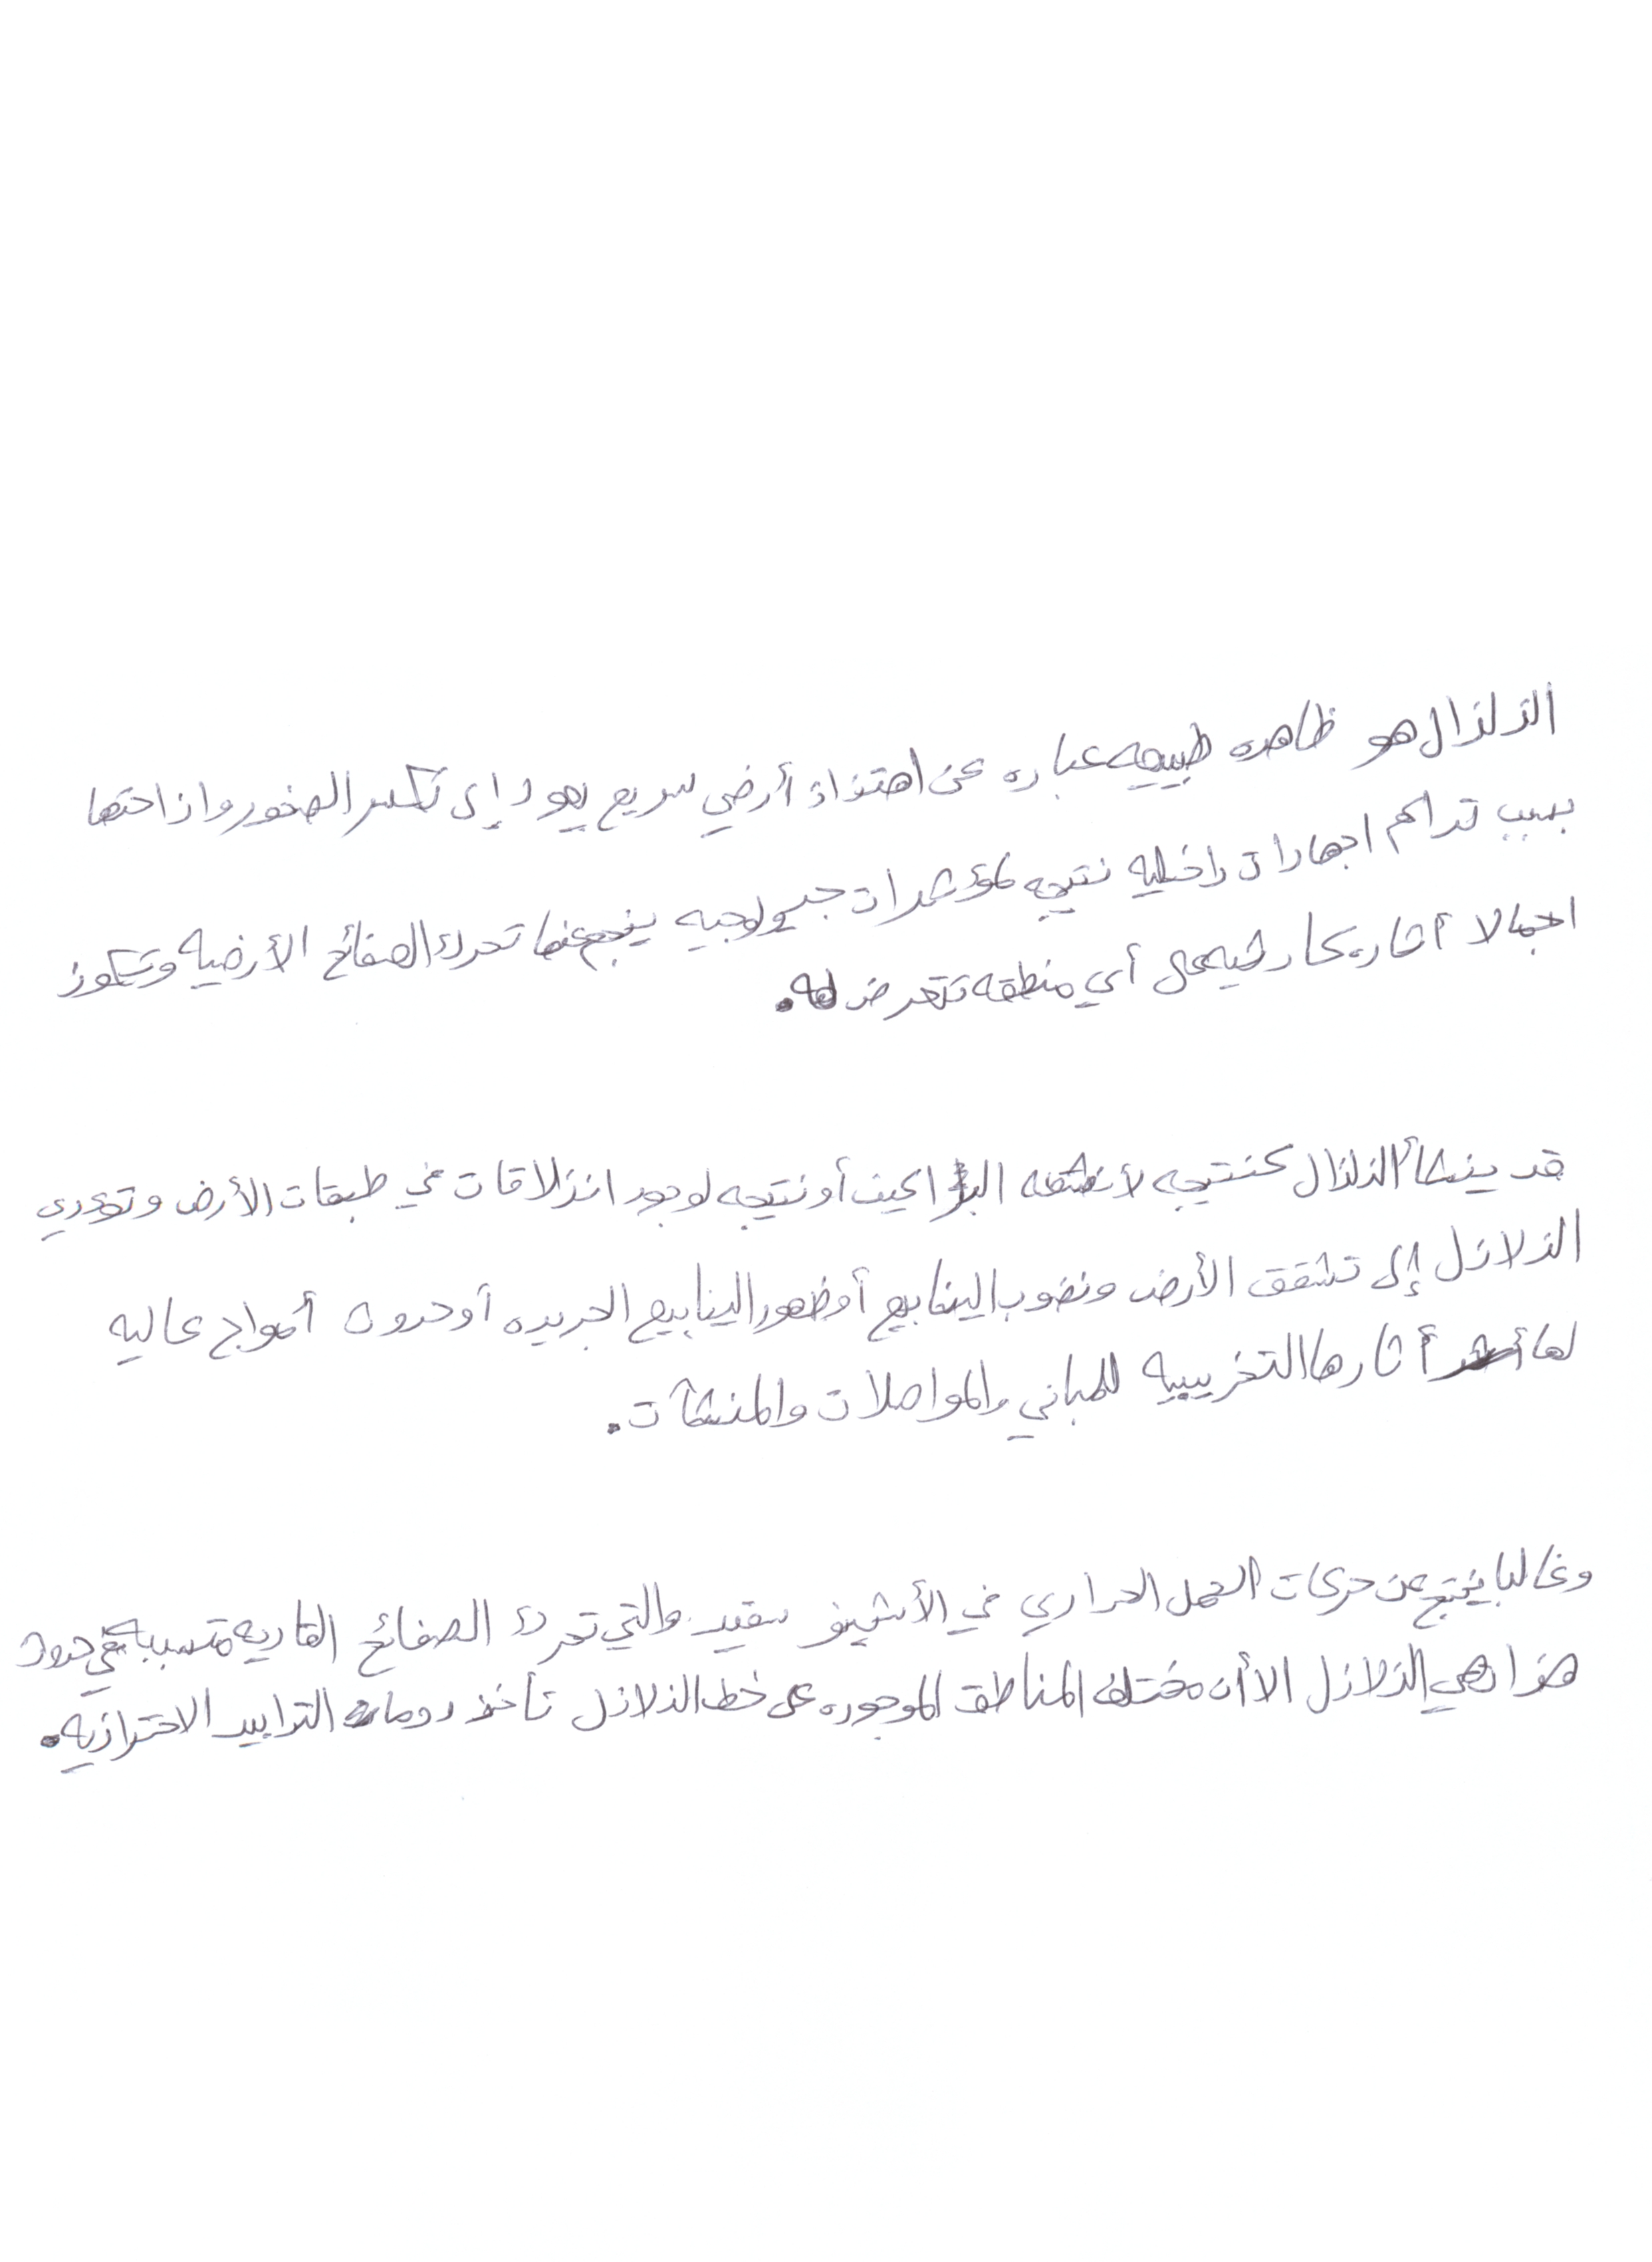 الزلزال هو ظاهره طبيعيه عباره عن اهتزاز أرضي سريع يعود إلى تكسر الصخور وازاحتها
بسبب تراكم اجهادات داخليه نتيجه لمؤثرات جيولوجيه ينجم عنها تحرك الصفائح الأرضيه وتكون
اجمالا آثاره كارثيه على أي منطقه تتعرض له.
قد ينشأ الزلزال كنتيجه لأنشطه البراكين أو نتيجه لوجود انزلاقات في طبقات الأرض وتؤدي
الزلازل إلى تشقق الأرض ونضوب الينابيع أو ظهور الينابيع الجديده أو حدوث أمواج عاليه
لها أثارها التخريبيه للمباني والمواصلات والمنشآت.
وغالبا ينتج عن حركات الحمل الحراري في الأسثينو سفير والتي تحرك الصفائح القاريه متسببه في حدوث
هذا هي الزلازل الا أن مختلف المناطق الموجوده على خط الزلازل تأخذ دوما التدابير الاحترازيه.